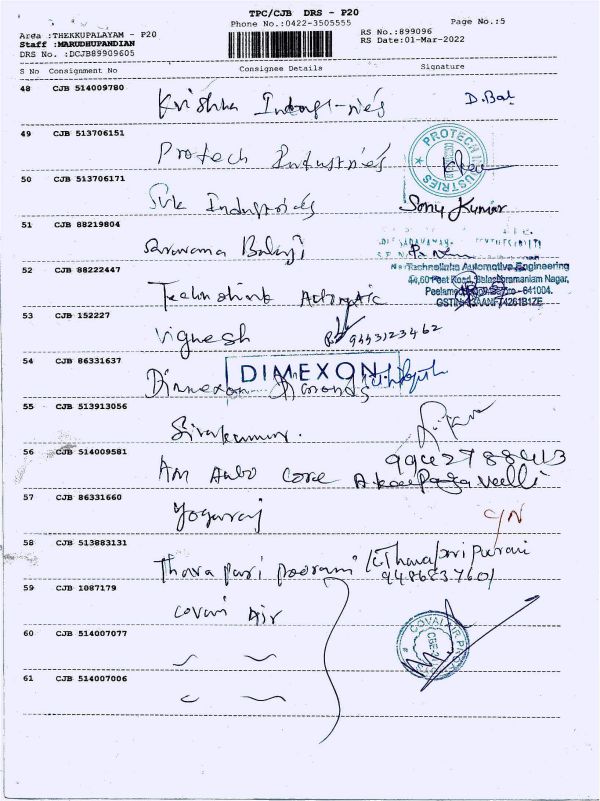 TPC/CJB DRS - P20
Phone No.:0422-3505555
Page No.:5
Area :THEKKUPALAYAM - P20
RS No.:899096
Staff :MARUDHUPANDIAN
RS Date:01-Mar-2022
DRS No. :DCJB89909605
S No Consignment No Consignee Details Signature
48 CJB 514009780
Krishna Industries D.Bal
49 CJB 513706151
Protech Industries
PROTECH INDUSTRIES
50 CJB 513706171
Industries Sonu Kumar
51 CJB 88219804
Saravana Balaji
52 CJB 88222447
Technolinks Automotive Engineering
Technolink
GSTIN
641004.
53 CJB 152227
Vignesh 9443123462
54 CJB 86331637
DIMEXON
Dimexon Diamonds
55 CJB 513913056
Sivakumar.
56 CJB 514009581
9942788413
AM Auto Core
57 CJB 86331660
Yogaraj
58 CJB 513883131
Thara puri poorani
9486837601
59 CJB 1087179
Covai Air
60 CJB 514007077
COVAI AIR
61 CJB 514007006